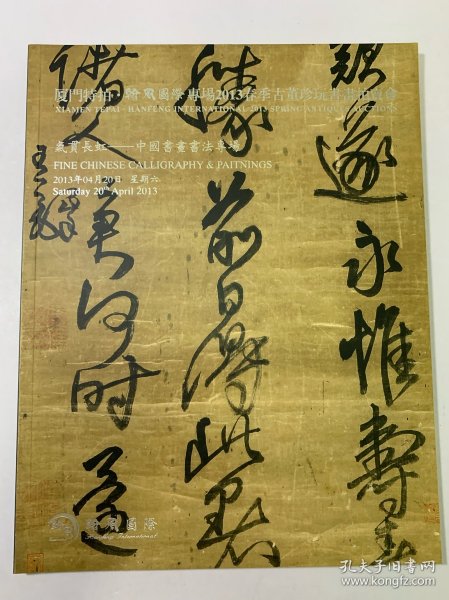 厦門特拍·翰風國際專場2013春季古董珍玩書畫拍賣會
XIAMEN TEPAI·HANFENG INTERNATIONAL 2013 SPRING ANTIQUE AUCTIONS
氣貫長虹——中國書畫書法專場
FINE CHINESE CALLIGRAPHY & PAITNINGS
2013年04月20日 星期六
Saturday 20th April 2013
遂永惟壽
前日得此
人莫何時
翰風國際
Hanfeng International
孔夫子旧书网
www.kongfz.com